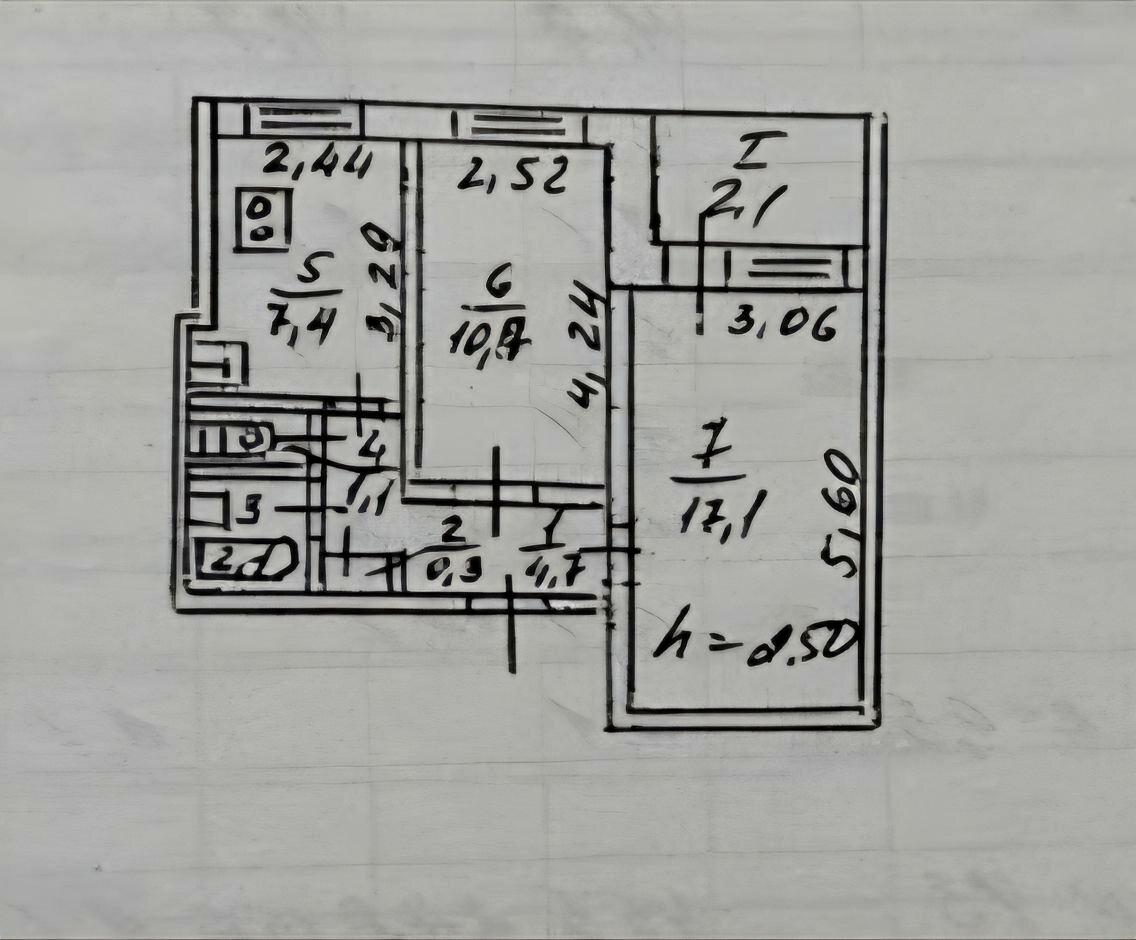 I
2,1
2,44
2,52
3,29
5
7,4
6
10,7
4,24
3,06
7
17,1
5,60
4
1,1
3
2,1
2
0,3
1
4,7
h = 2.50